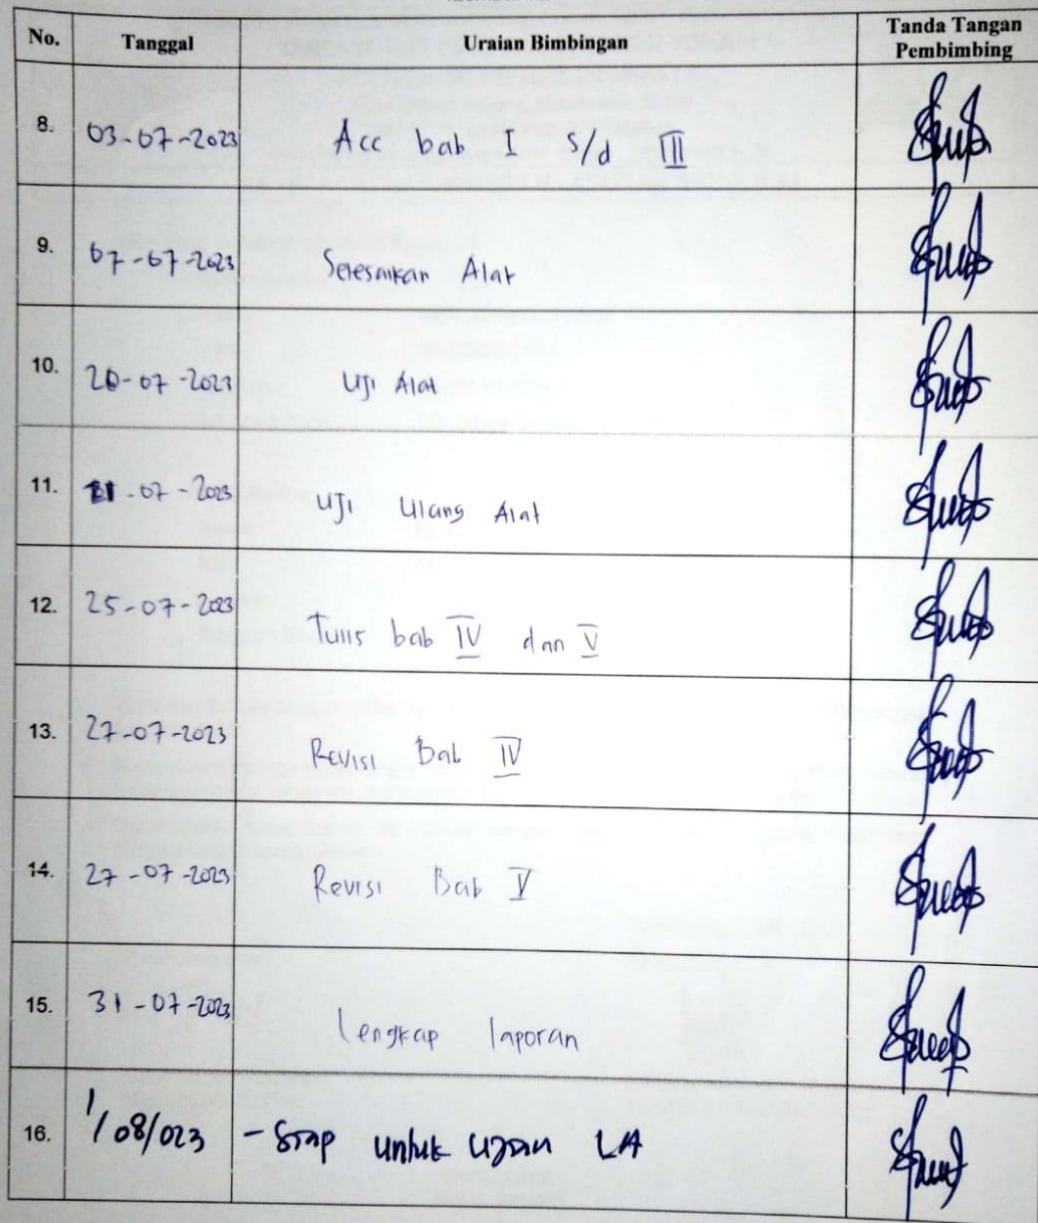 No. Tanggal Uraian Bimbingan Tanda Tangan Pembimbing
8. 03-07-2023 Acc bab I s/d III
9. 07-07-2023 Selesaikan Alat
10. 20-07-2023 Uji Alat
11. 21-07-2023 Uji Ulang Alat
12. 25-07-2023 Tulis bab IV dan V
13. 27-07-2023 Revisi Bab IV
14. 27-07-2023 Revisi Bab V
15. 31-07-2023 Lengkap laporan
16. 1/08/023 - Siap untuk ujian LA